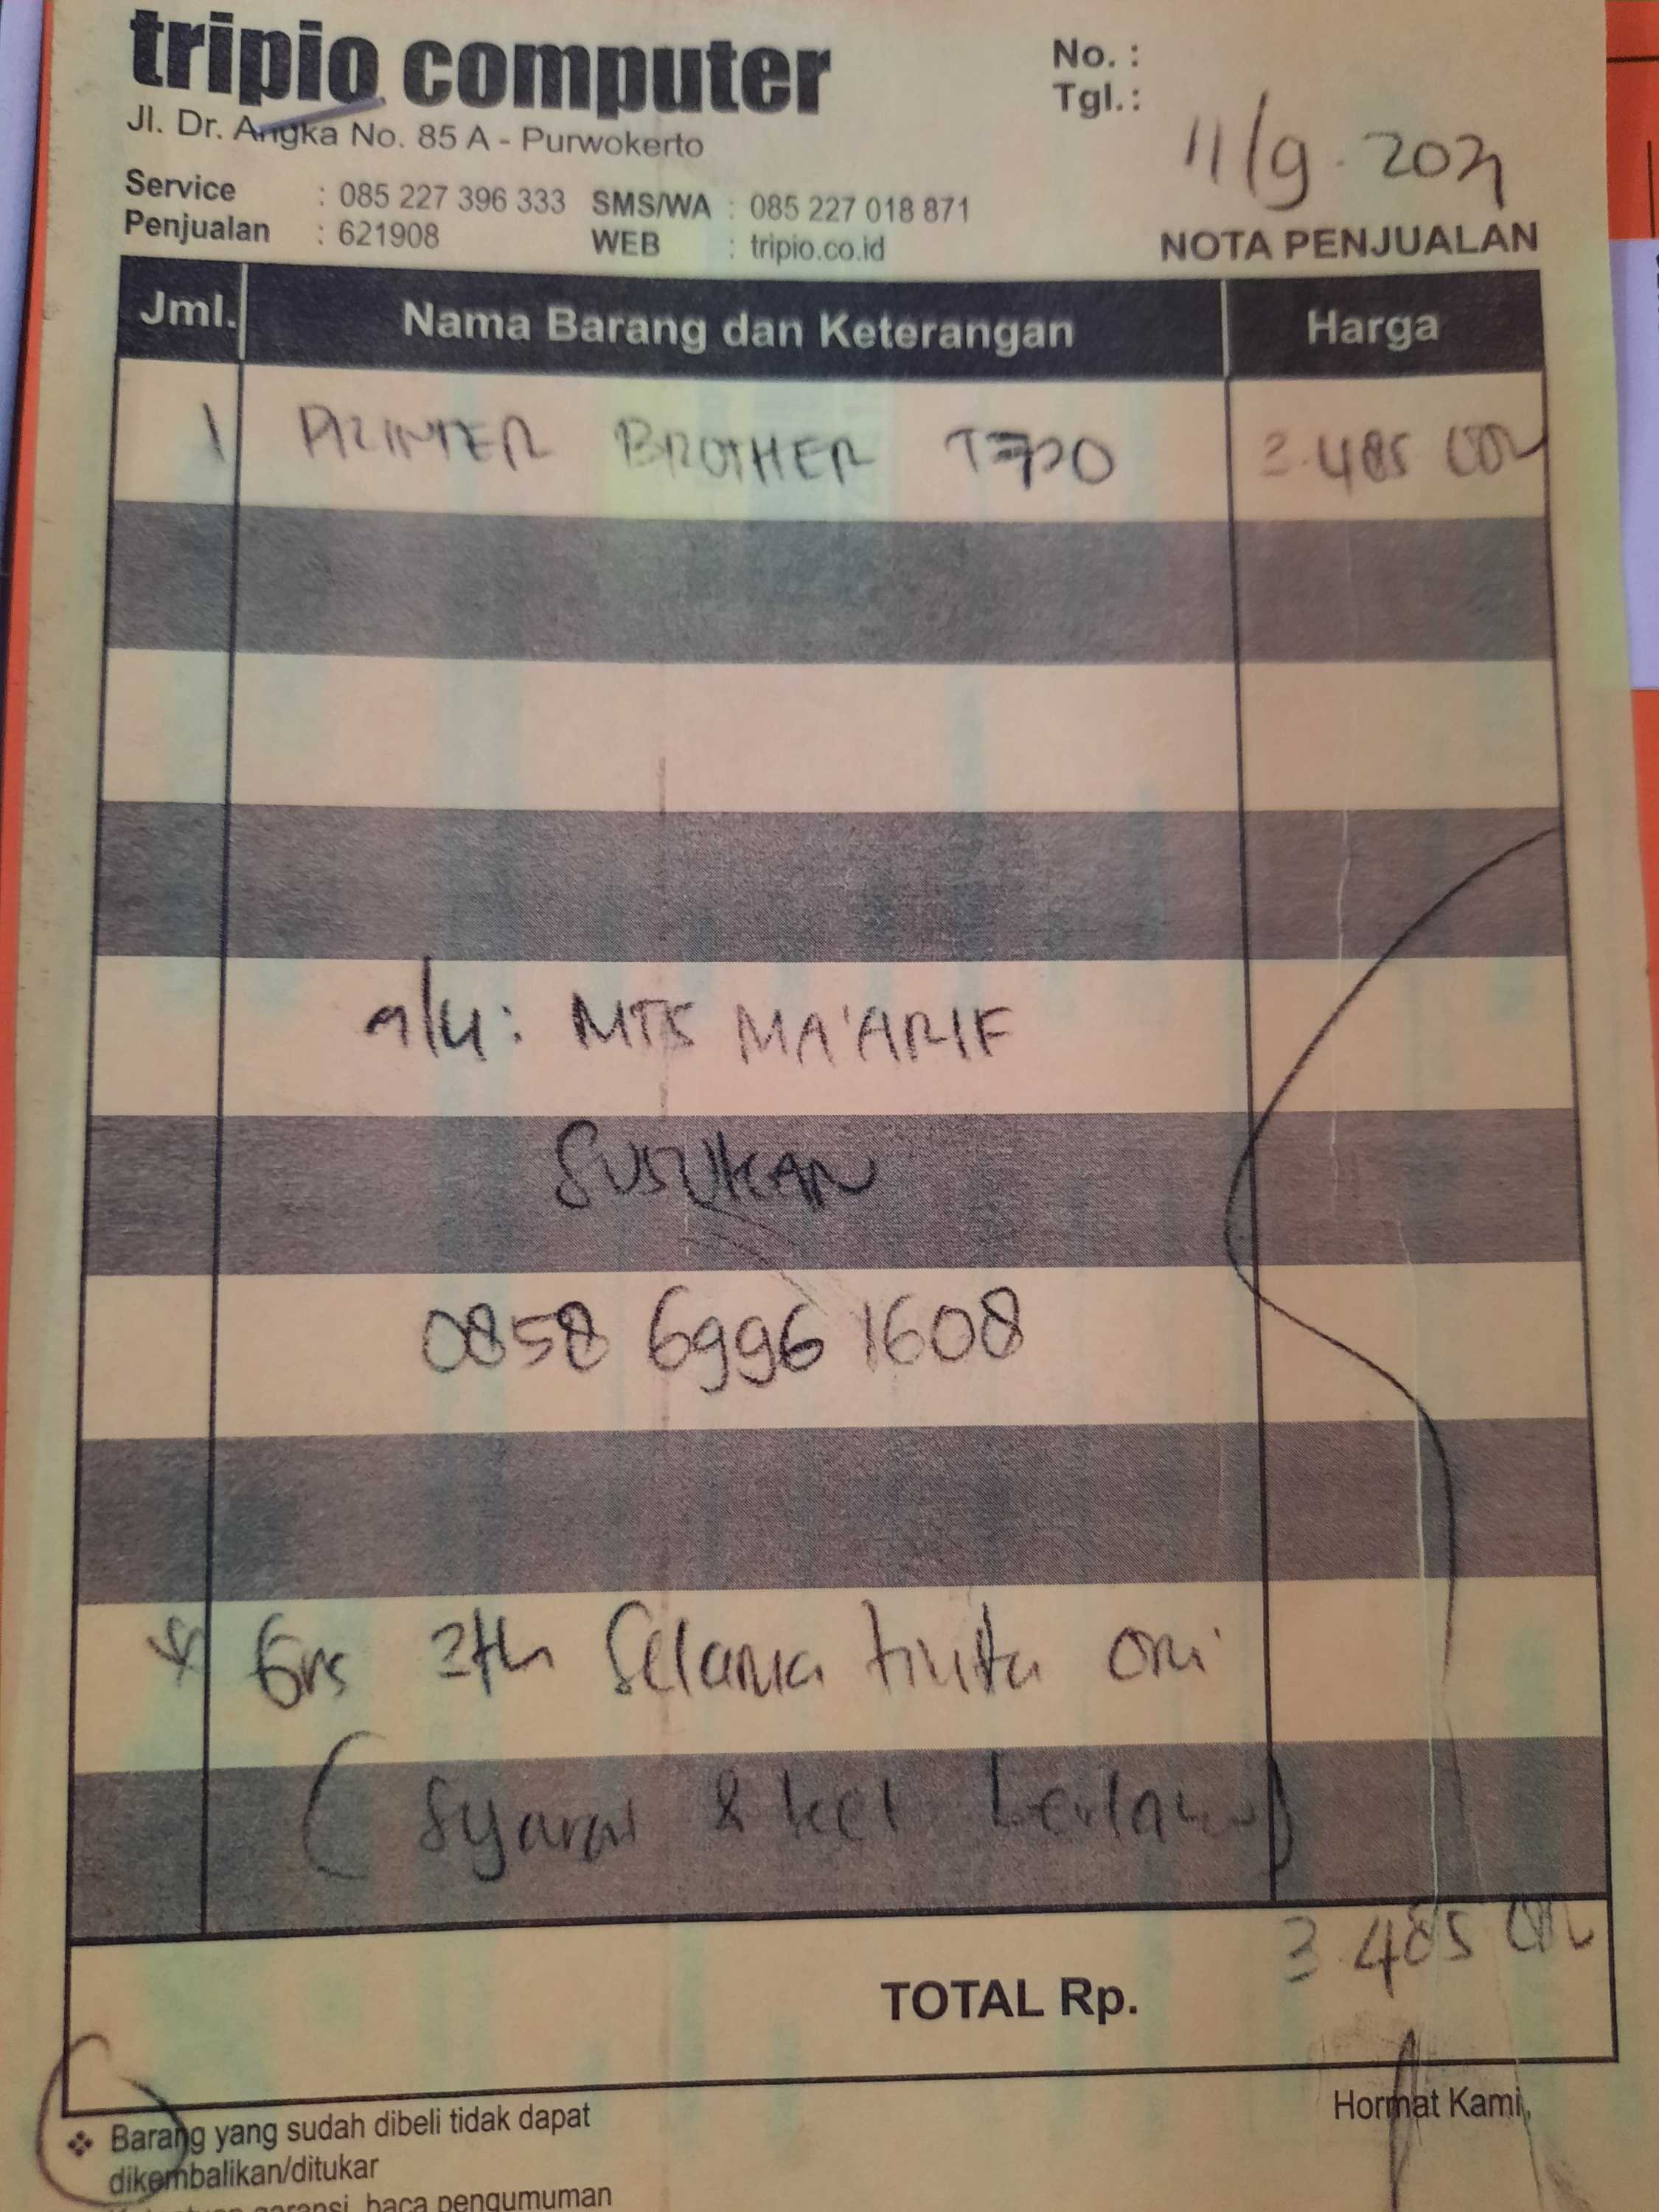 tripio computer
Jl. Dr. Angka No. 85 A - Purwokerto
Service : 085 227 396 333 SMS/WA : 085 227 018 871
Penjualan : 621908 WEB : tripio.co.id
No. :
Tgl. : 11/9.
NOTA PENJUALAN
Jml. Nama Barang dan Keterangan Harga
1 PRINTER BROTHER T720 3.485
a/u: MTS MA'ARIF
SUSUKAN
0858 6996 1608
Grs 2th Selama tinta ori
( Syarat & ket berlaku )
TOTAL Rp. 3.485
Hormat Kami,
❖ Barang yang sudah dibeli tidak dapat
dikembalikan/ditukar
garansi, baca pengumuman